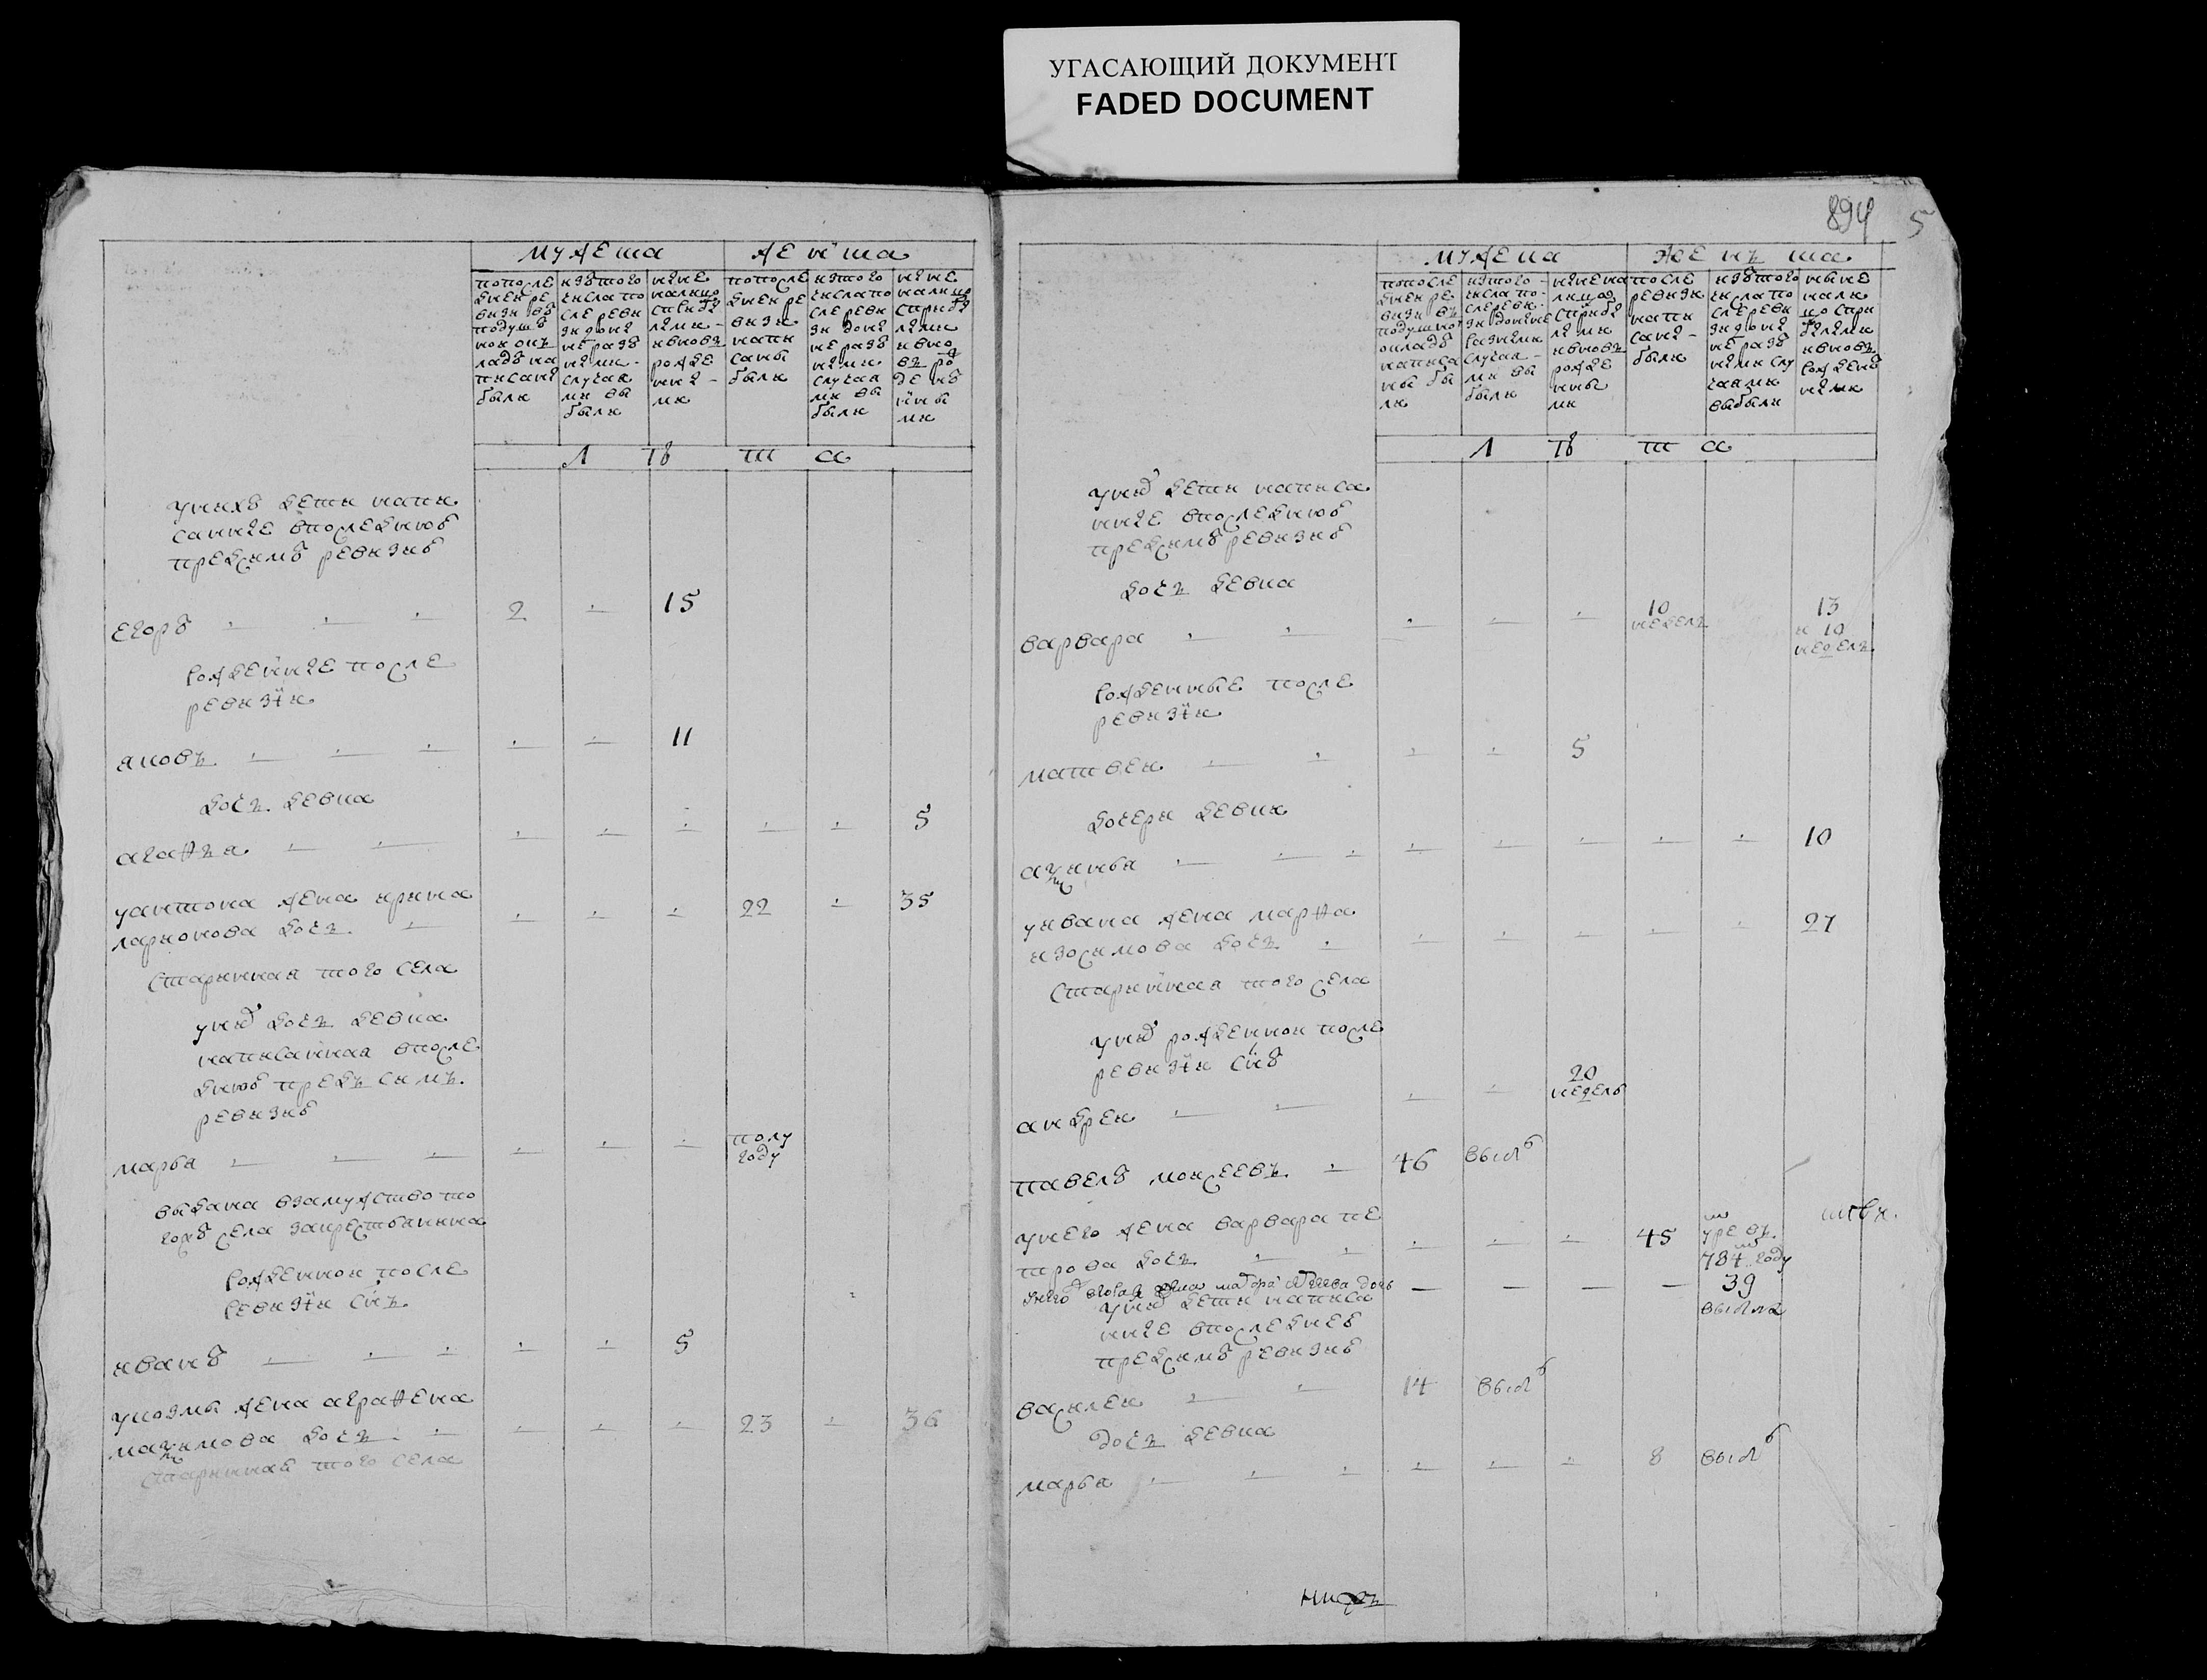 УГАСАЮЩИЙ ДОКУМЕНТ
FADED DOCUMENT
894 5
мужеска
женска
попосле
дней ре
визи въ
подуш
ной ок
ладъ на
писаны
были
изътого
числа по
сле реви
зи доны
не разъ
ными
случая
ми вы
были
ныне
налицо
спибы
лыми
ивновь
рожде
нны
ми
попосле
дней ре
визи
напи
саны
были
изтого
числапо
сле реви
зи доны
не разъ
ными
случая
ми вы
были
ныне
налицо
сприбы
лыми
ивно
вь ро
жденъ
ными
лѣта
унихъ дети напи
санные впоследнюю
предсимъ ревизию
егоръ 2 15
рожденные после
ревизии
яковъ 11
дочь девка
агафья 5
уантона жена ирина
ларионова дочь 22 35
старинная того села
унея дочь девка
написанная впосле
днюю предъ симъ
ревизию
марья полу
году
выдана взамужство то
гожъ села закрестьянина
рожденной после
ревизии сынъ
иванъ 5
укозмы жена аграфена
максимова дочь 23 36
старинная того села
мужеска
женска
попосле
дней ре
визи въ
подушной
окладъ
написа
ны бы
ли
изтого
числа по
слереви
зи доныне
разными
случая
ми вы
были
ныне на
лицо
сприбы
лыми
ивновь
рожде
нны
ми
после
ревизи
напи
саны
были
изътого
числа по
слереви
зи доны
не разъ
ными слу
чаями
выбыли
ныне
нали
цо спри
былыми
ивновь
рожденъ
ными
лѣта
унея дети написа
нные впоследнюю
предсимъ ревизию
дочь девка
варвара 10
недель 13
и 10
недель
рожденные после
ревизии
матвей 5
дочери девки
аксинья 10
уивана жена марфа
изосимова дочь 27
старинная того села
унея рожденной после
ревизии сынъ
андрей 20
недель
павелъ моисеевъ 46
унего жена варвара пе
трова дочь 45 умре въ
784 году
унего вторая жена дочь 39
выбыла
унея дети написа
нные впоследнюю
предсимъ ревизию
василей 14
дочь девка
марья 8